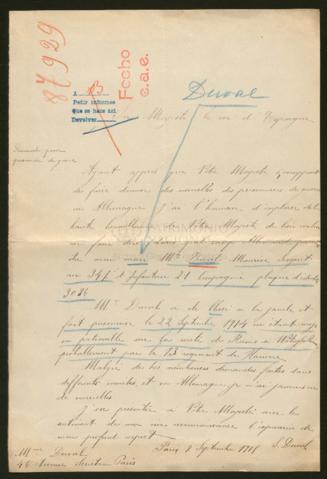 87929
A
Pedir informes
que se hace así.
Devolver
Fecho
c.a.e.
Duval
A sa Majesté le roi d'Espagne
Demande pour
prisonnier de guerre
Ayant appris que Votre Majesté s'occupait
de faire donner des nouvelles des prisonniers de guerre
en Allemagne j'ai l'honneur d'implorer de la
haute bienveillance de Votre Majesté de bien vouloir
faire
mon mari Mr Duval Maurice August
au 34 d'Infanterie 21 compagnie plaque d'identité
3036
Mr Duval a été blessé à la jambe et
fait prisonnier le 22 Septembre 1914 en étant
en patrouille sur la route de Reims à
probablement par le 73 régiment de Hanovre.
Malgré des nombreuses demandes faites dans
différents comités, et en Allemagne je n'ai jamais eu
de nouvelles
J'ose présenter à Votre Majesté avec le
sentiment de ma vive reconnaissance l'expression de
mon profond respect.
Paris, 8 Septembre 1915 S. Duval
Mme Duval
46 Avenue Secrétan Paris